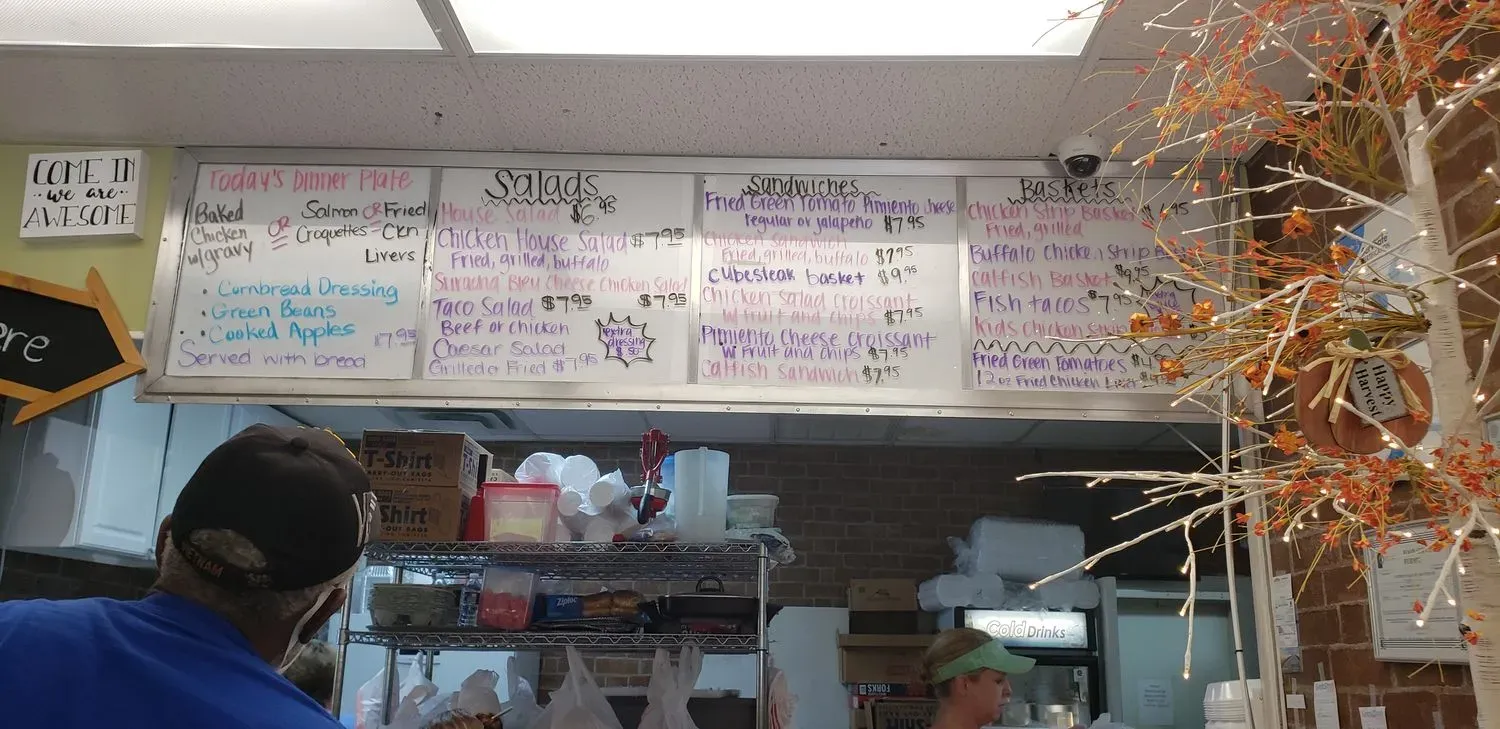 COME IN
we are
AWESOME
ere
Today's Dinner Plate
Baked
Chicken
w/gravy
OR
Salmon OR Fried
Croquettes Ckn
Livers
• Cornbread Dressing
• Green Beans
• Cooked Apples
Served with bread
Salads
House Salad $6.95
Chicken House Salad $7.95
Fried, grilled, buffalo
Suracha Bleu Cheese Chicken Salad
$7.95
Taco Salad $7.95
Beef or Chicken
Caesar Salad
Grilled or Fried $7.95
extra
dressing
Sandwiches
Fried Green Tomato Pimiento Cheese
regular or jalapeño $7.95
Chicken Sandwich
Fried, grilled, buffalo $7.95
Cubesteak basket $9.95
Chicken Salad Croissant
w fruit and chips $7.95
Pimiento Cheese Croissant
w Fruit and Chips $7.95
Catfish Sandwich $7.95
Baskets
Chicken Strip Basket
Fried, grilled
Buffalo Chicken Strip
Catfish Basket $9.95
Fish Tacos $7.95
Kids Chicken Strip
Fried Green Tomatoes
12oz Fried Chicken
Happy
Harvest
T-Shirt
CARRY-OUT BAGS
Shirt
-OUT BAGS
Ziploc
Cold Drinks
FORKS